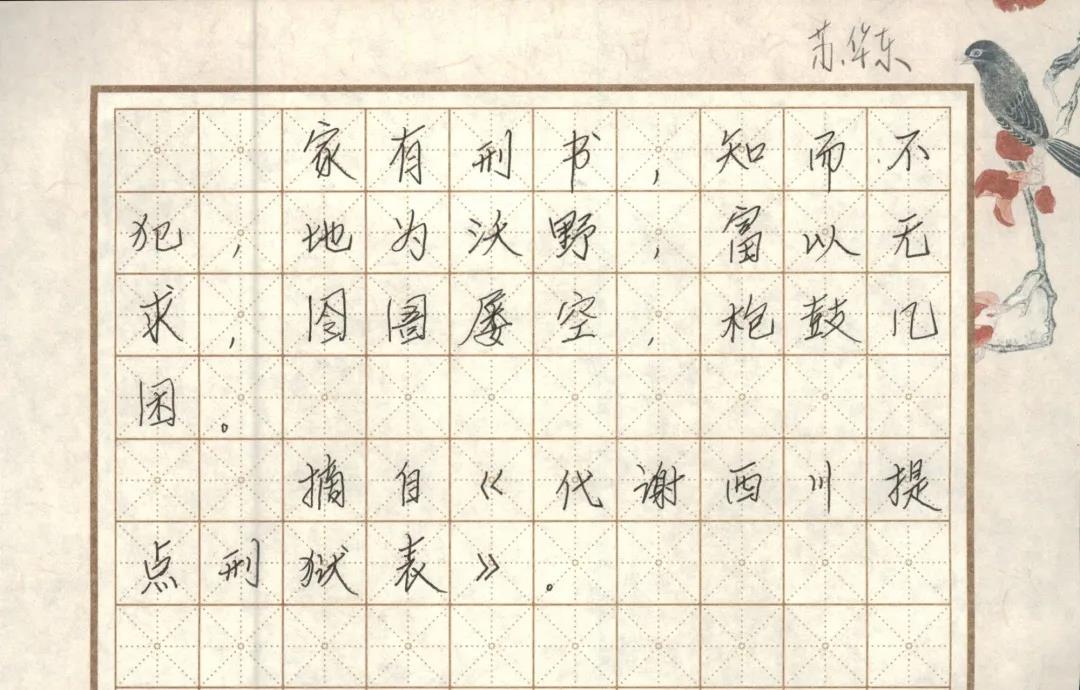 苏华东
家有刑书，知而不
犯，地为沃野，富以无
求，囹圄屡空，枹鼓几
困。
摘自《代谢西川提
点刑狱表》。